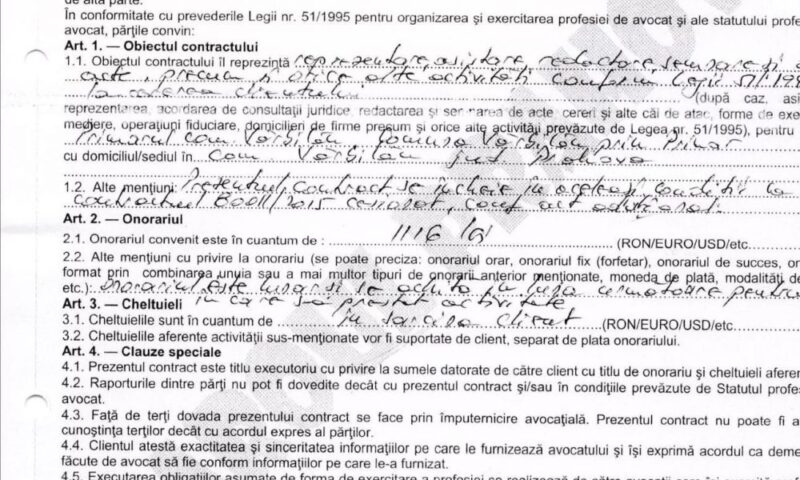 de altă parte.
În conformitate cu prevederile Legii nr. 51/1995 pentru organizarea şi exercitarea profesiei de avocat şi ale statutului profe
avocat, părţile convin:
Art. 1. — Obiectul contractului
1.1. Obiectul contractului îl reprezintă reprezentare, asistare, redactare, semnare şi
acte, precum şi orice alte activităţi conform Legii 51/199
la cererea clientului (după caz, asi
reprezentarea, acordarea de consultaţii juridice, redactarea şi semnarea de acte, cereri şi alte căi de atac, forme de exe
mediere, operaţiuni fiduciare, domicilieri de firme precum şi orice alte activităţi prevăzute de Legea nr. 51/1995), pentru
Primarul com Vărbilău, Comuna Vărbilău prin Primar
cu domiciliul/sediul în com Vărbilău jud Prahova
1.2. Alte menţiuni: Prezentul contract se încheie în aceleaşi condiţii la
contractul /2015 conf act adiţional.
Art. 2. — Onorariul
2.1. Onorariul convenit este în cuantum de : 1116 lei (RON/EURO/USD/etc
2.2. Alte menţiuni cu privire la onorariu (se poate preciza: onorariul orar, onorariul fix (forfetar), onorariul de succes, on
format prin combinarea unuia sau a mai multor tipuri de onorarii anterior menţionate, moneda de plată, modalităţi de
etc.): onorariul este lunar şi se achită în luna următoare pentru
în care s-a prestat activitate
Art. 3. — Cheltuieli
3.1. Cheltuielile sunt în cuantum de în sarcina client (RON/EURO/USD/etc
3.2. Cheltuielile aferente activităţii sus-menţionate vor fi suportate de client, separat de plata onorariului.
Art. 4. — Clauze speciale
4.1. Prezentul contract este titlu executoriu cu privire la sumele datorate de către client cu titlu de onorariu şi cheltuieli aferen
4.2. Raporturile dintre părţi nu pot fi dovedite decât cu prezentul contract şi/sau în condiţiile prevăzute de Statutul profe
avocat.
4.3. Faţă de terţi dovada prezentului contract se face prin împuternicire avocaţială. Prezentul contract nu poate fi a
cunoştinţa terţilor decât cu acordul expres al părţilor.
4.4. Clientul atestă exactitatea şi sinceritatea informaţiilor pe care le furnizează avocatului şi îşi exprimă acordul ca deme
făcute de avocat să fie conform informaţiilor pe care le-a furnizat.
4.5. Executarea obligaţiilor asumate de forma de exercitare a profesiei se realizează de către